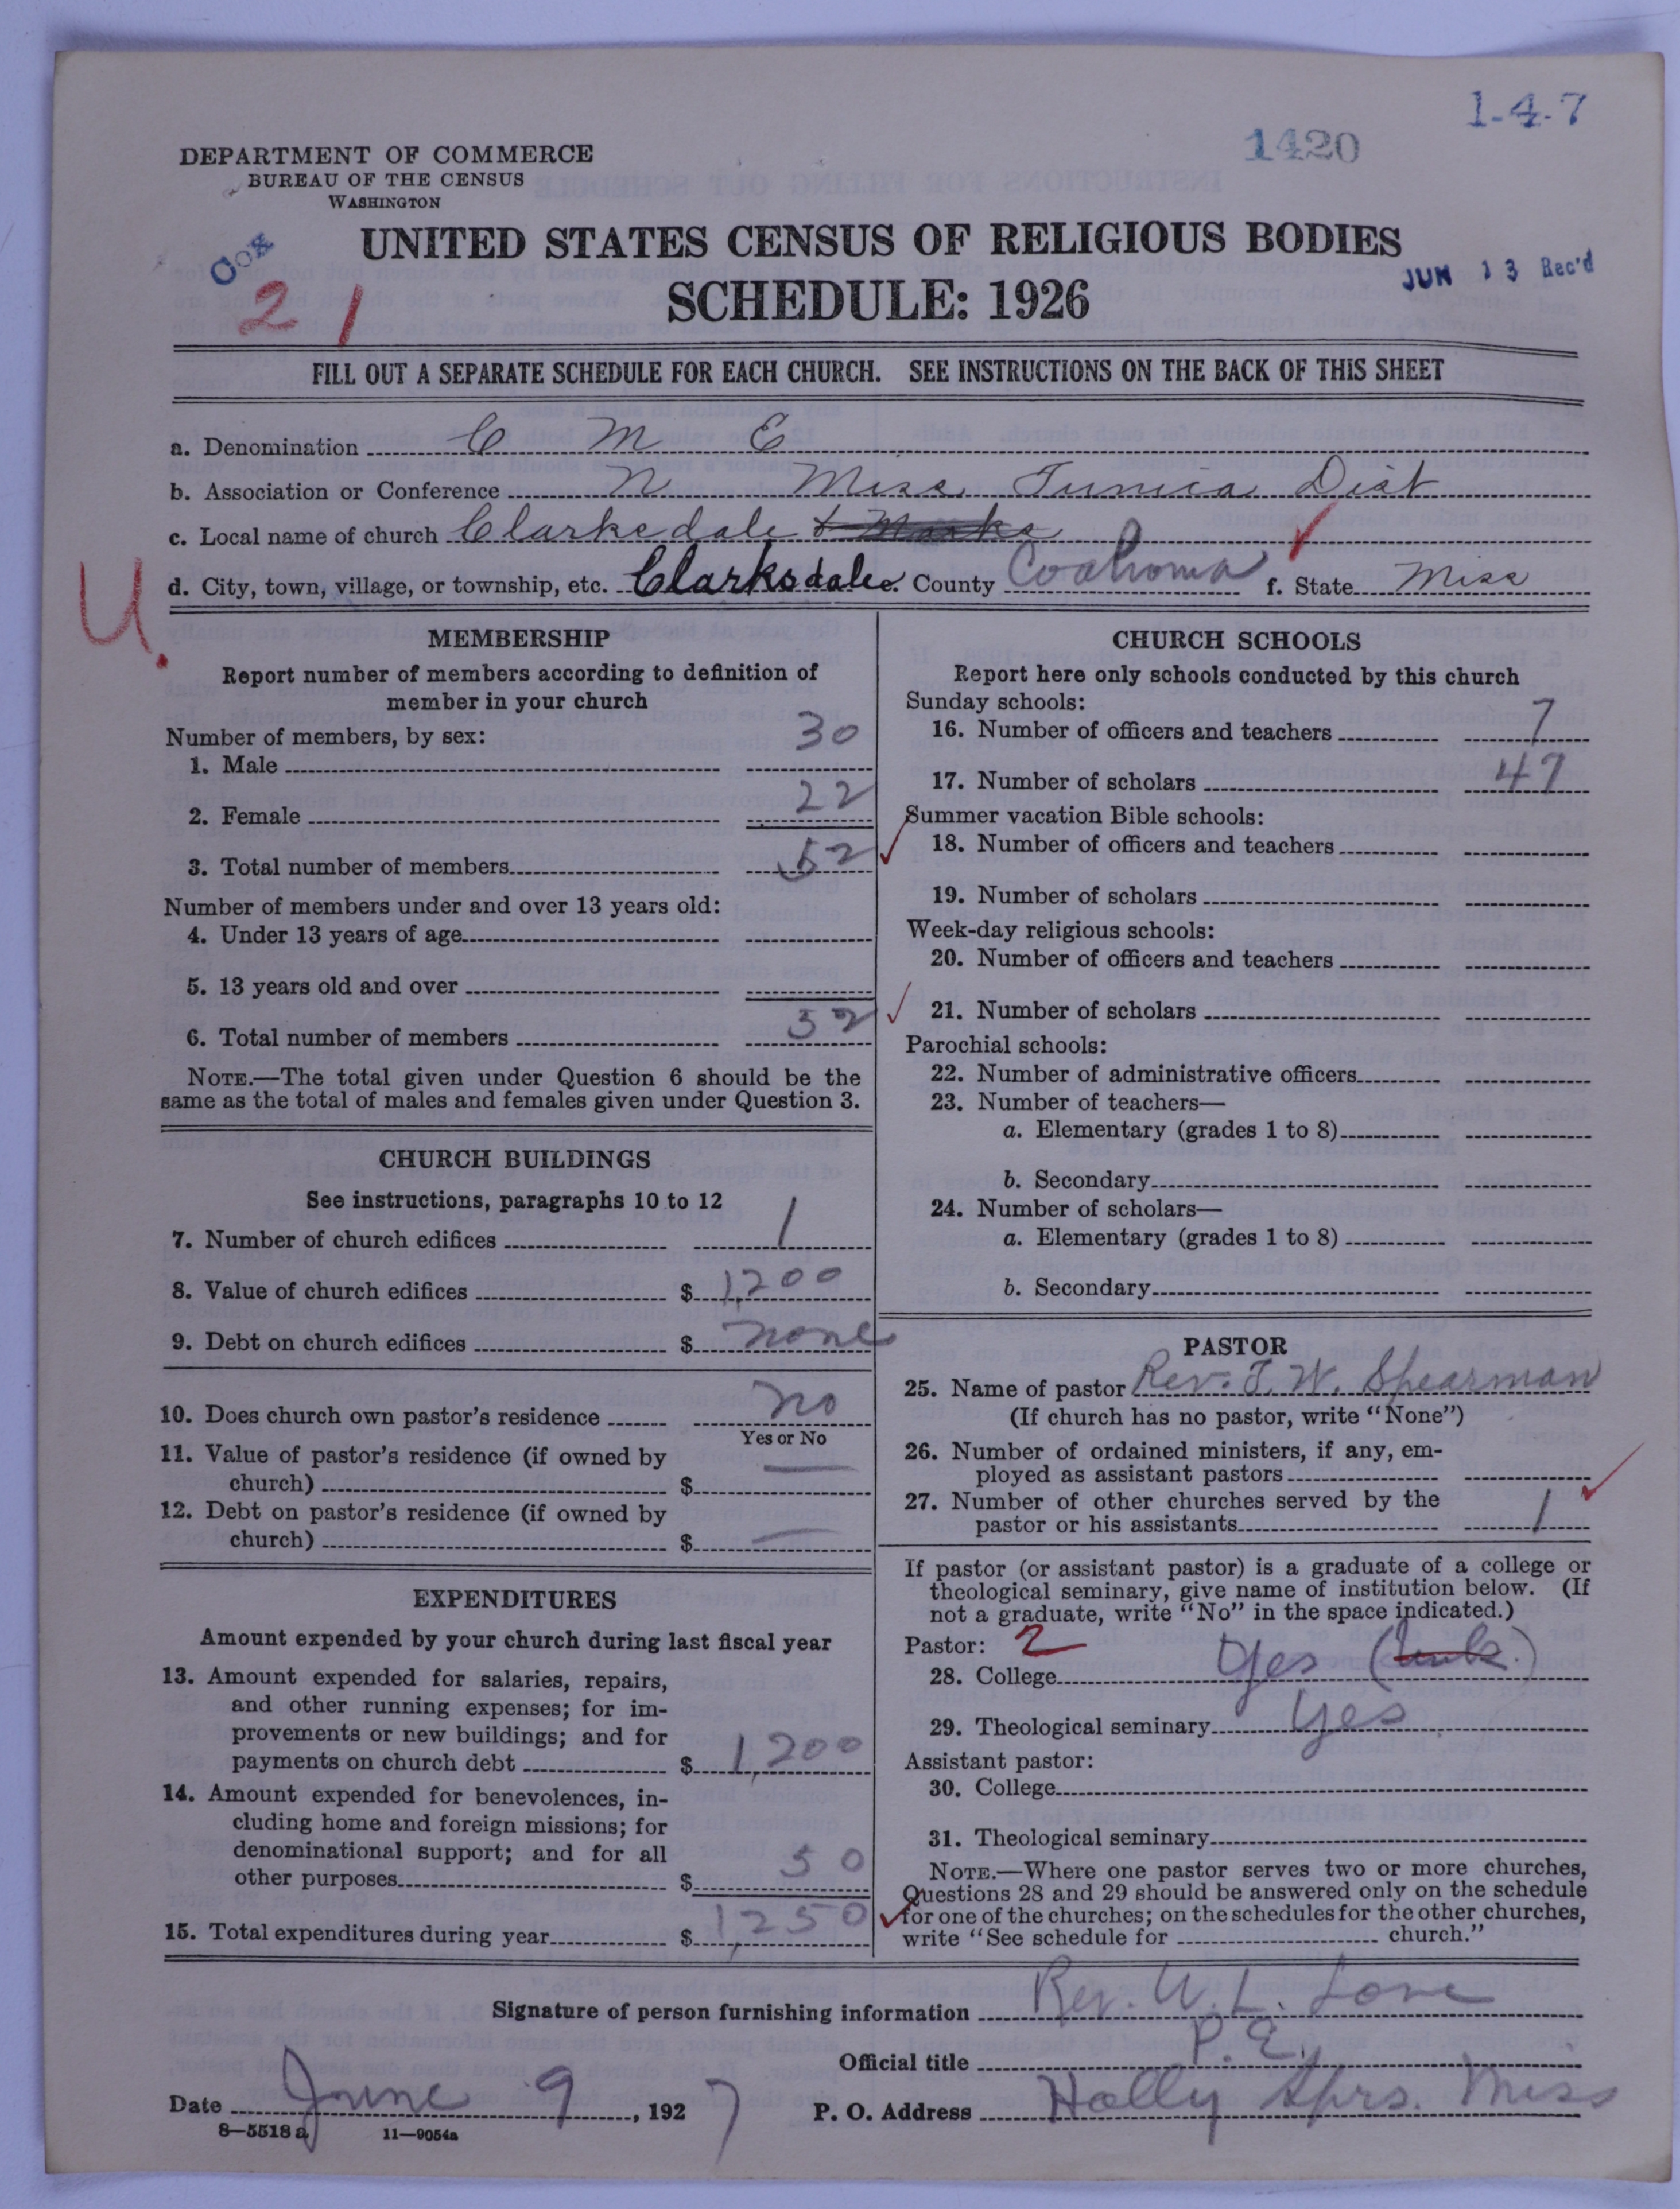 1-4-7
1420
DEPARTMENT OF COMMERCE
BUREAU OF THE CENSUS
WASHINGTON
UNITED STATES CENSUS OF RELIGIOUS BODIES
JUN 13 Rec'd
21
SCHEDULE: 1926
FILL OUT A SEPARATE SCHEDULE FOR EACH CHURCH. SEE INSTRUCTIONS ON THE BACK OF THIS SHEET
a. Denomination C M E
b. Association or Conference N Miss Tunica Dist
c. Local name of church Clarksdale & Marks
d. City, town, village, or township, etc. Clarksdale e. County Coahoma f. State Miss
U.
MEMBERSHIP
Report number of members according to definition of
member in your church
Number of members, by sex:
1. Male 30
2. Female 22
3. Total number of members 52
Number of members under and over 13 years old:
4. Under 13 years of age
5. 13 years old and over
6. Total number of members 52
NOTE.—The total given under Question 6 should be the
same as the total of males and females given under Question 3.
CHURCH BUILDINGS
See instructions, paragraphs 10 to 12
7. Number of church edifices 1
8. Value of church edifices $ 1,200
9. Debt on church edifices $ none
10. Does church own pastor's residence no
Yes or No
11. Value of pastor's residence (if owned by
church) $ —
12. Debt on pastor's residence (if owned by
church) $ —
EXPENDITURES
Amount expended by your church during last fiscal year
13. Amount expended for salaries, repairs,
and other running expenses; for im-
provements or new buildings; and for
payments on church debt $ 1,200
14. Amount expended for benevolences, in-
cluding home and foreign missions; for
denominational support; and for all
other purposes $ 50
15. Total expenditures during year $ 1,250
CHURCH SCHOOLS
Report here only schools conducted by this church
Sunday schools:
16. Number of officers and teachers 7
17. Number of scholars 47
Summer vacation Bible schools:
18. Number of officers and teachers
19. Number of scholars
Week-day religious schools:
20. Number of officers and teachers
21. Number of scholars
Parochial schools:
22. Number of administrative officers
23. Number of teachers—
a. Elementary (grades 1 to 8)
b. Secondary
24. Number of scholars—
a. Elementary (grades 1 to 8)
b. Secondary
PASTOR
25. Name of pastor Rev. T. W. Spearman
(If church has no pastor, write "None")
26. Number of ordained ministers, if any, em-
ployed as assistant pastors
27. Number of other churches served by the
pastor or his assistants 1
If pastor (or assistant pastor) is a graduate of a college or
theological seminary, give name of institution below. (If
not a graduate, write "No" in the space indicated.)
Pastor: 2
28. College Yes
29. Theological seminary yes
Assistant pastor:
30. College
31. Theological seminary
NOTE.—Where one pastor serves two or more churches,
Questions 28 and 29 should be answered only on the schedule
for one of the churches; on the schedules for the other churches,
write "See schedule for church."
Signature of person furnishing information Rev. W. L. Love
Official title P. E.
Date June 9, 1927 P. O. Address Holly Sprs. Miss
8—5518 a 11—9054a